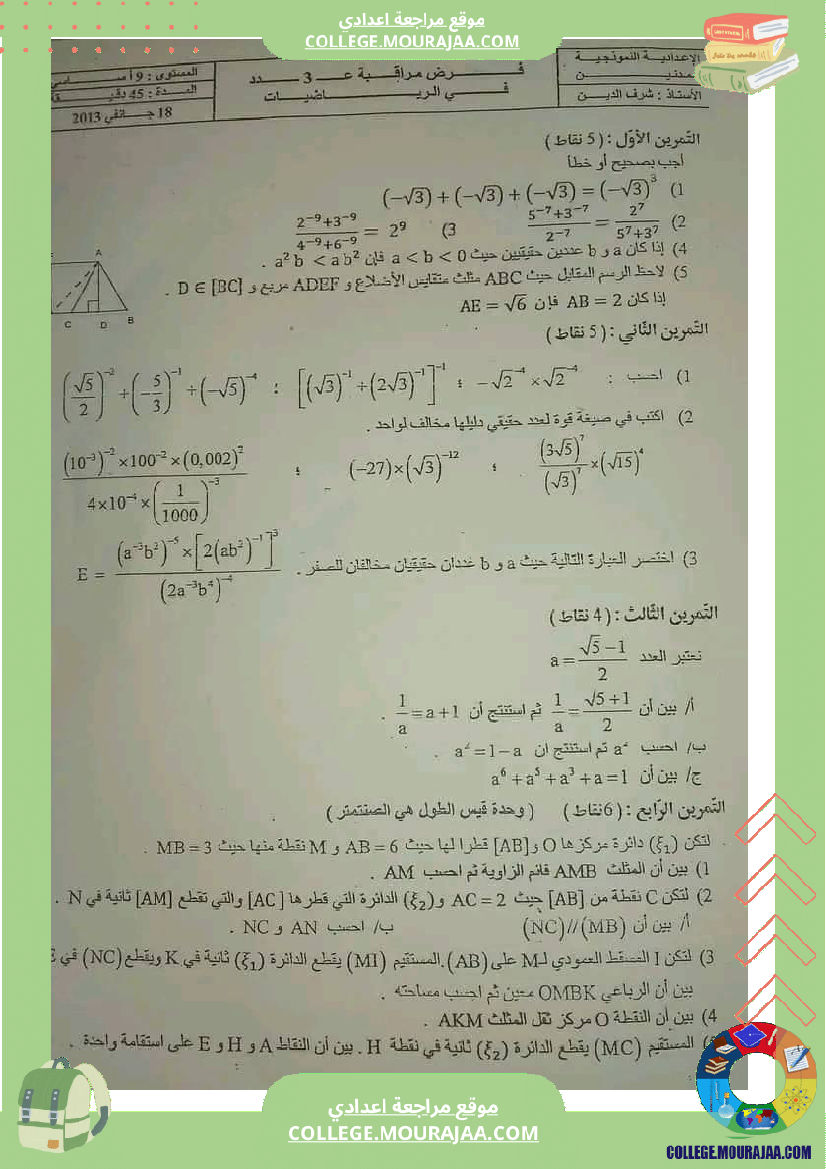 موقع مراجعة اعدادي
COLLEGE.MOURAJAA.COM
الإعدادية النموجية
مدنيـن
الأستاذ : شرف الدين
فـرض مراقـبة عـــ 3 ـــدد
فـي الريـاضيـات
المستوى : 9 أساسي
المدة : 45 دقيقة
18 جانفي 2013
التمرين الأوّل : ( 5 نقاط )
أجب بصحيح أو خطأ
1) (−√3) + (−√3) + (−√3) = (−√3)³
2) (5⁻⁷+3⁻⁷)/2⁻⁷ = 2⁷/(5⁷+3⁷)
3) (2⁻⁹+3⁻⁹)/(4⁻⁹+6⁻⁹) = 2⁹
4) إذا كان a و b عددين حقيقيين حيث a < b < 0 فإن a² b < a b² .
5) لاحظ الرسم المقابل حيث ABC مثلث متقايس الأضلاع و ADEF مربع و D ∈ [BC] .
إذا كان AB = 2 فإن AE = √6
A
C D B
التمرين الثاني : ( 5 نقاط )
1) احسب : −√2⁻⁴ × √2⁻⁴ ؛ [(√3)⁻¹ + (2√3)⁻¹]⁻¹ ؛ (√5/2)⁻² + (−5/3)⁻¹ + (−√5)⁻⁴
2) اكتب في صيغة قوة لعدد حقيقي دليلها مخالف لواحد .
(3√5)⁷/(√3)⁷ × (√15)⁴ ؛ (−27)×(√3)⁻¹² ؛ ((10⁻³)⁻² × 100⁻² × (0,002)²)/(4×10⁻⁴ × (1/1000)⁻³)
3) اختصر العبارة التالية حيث a و b عددان حقيقيان مخالفان للصفر . E = ((a⁻³b²)⁻⁵ × [2(ab²)⁻¹]³)/(2a⁻³b⁴)⁻⁴
التمرين الثالث : ( 4 نقاط )
نعتبر العدد a = (√5 −1)/2
أ/ بين أن 1/a = (√5 +1)/2 ثم استنتج أن 1/a = a+1 .
ب/ احسب a² ثم استنتج ان a² = 1−a .
ج/ بين أن a⁶ + a⁵ + a³ + a = 1
التمرين الرابع : ( 6 نقاط ) ( وحدة قيس الطول هي الصنتمتر )
لتكن (ξ₁) دائرة مركزها O و [AB] قطرا لها حيث AB = 6 و M نقطة منها حيث MB = 3 .
1) بين أن المثلث AMB قائم الزاوية ثم احسب AM .
2) لتكن C نقطة من [AB] حيث AC = 2 و (ξ₂) الدائرة التي قطرها [AC] والتي تقطع [AM] ثانية في N .
أ/ بين أن (NC)//(MB) ب/ احسب AN و NC .
3) لتكن I المسقط العمودي لـ M على (AB). المستقيم (MI) يقطع الدائرة (ξ₁) ثانية في K ويقطع (NC) في E
بين أن الرباعي OMBK معين ثم احسب مساحته .
4) بين أن النقطة O مركز ثقل المثلث AKM .
المستقيم (MC) يقطع الدائرة (ξ₂) ثانية في نقطة H . بين أن النقاط A و H و E على استقامة واحدة .
موقع مراجعة اعدادي
COLLEGE.MOURAJAA.COM
COLLEGE.MOURAJAA.COM